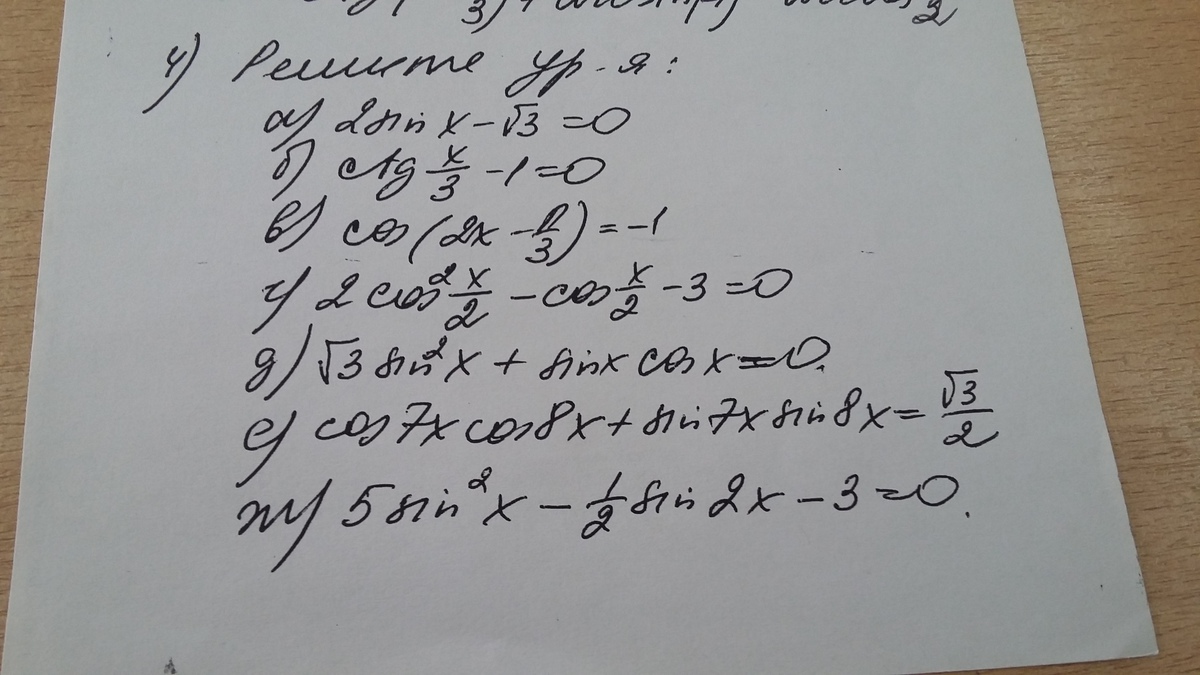 4) Решите ур-я:
а) 2sin x - √3 = 0
б) ctg x/3 - 1 = 0
в) cos(2x - π/3) = -1
г) 2cos² x/2 - cos x/2 - 3 = 0
д) √3 sin²x + sinx cosx = 0.
е) cos7x cos8x + sin7x sin8x = √3/2
ж) 5sin²x - 1/2 sin2x - 3 = 0.